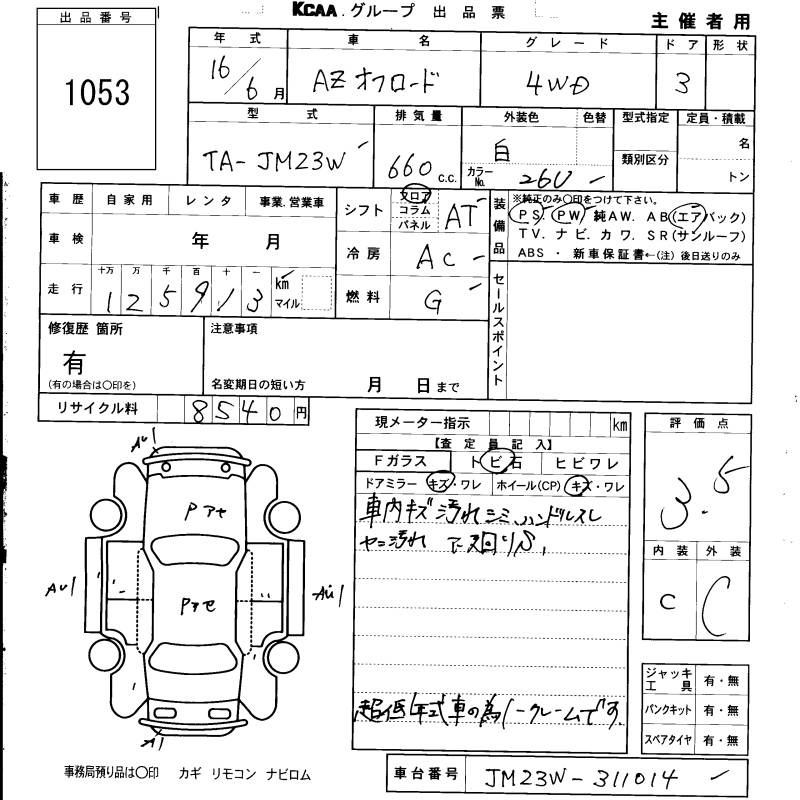 KCAA.グループ 出品票
主催者用
出品番号
1053
年式 車名 グレード ドア 形状
16/6月 AZオフロード 4WD 3
型式 排気量 外装色 色替 型式指定 定員・積載
TA-JM23W 660 c.c. 白 名
カラーNo. 260 類別区分 トン
車歴 自家用 レンタ 事業.営業車
シフト フロア コラム パネル AT
装備品
※純正のみ○印をつけて下さい。
PS. PW. 純AW. AB(エアバック)
TV. ナビ. カワ. SR(サンルーフ)
ABS ・ 新車保証書←(注) 後日送りのみ
車検 年 月
冷房 AC
走行 十万 万 千 百 十 一
125913 km マイル
燃料 G
セールスポイント
修復歴 箇所
有
(有の場合は○印を)
注意事項
名変期日の短い方 月 日まで
リサイクル料 8540円
現メーター指示 km
【査定員記入】
Fガラス トビ石 ヒビワレ
ドアミラー キズ・ワレ ホイール(CP) キズ・ワレ
車内キズ汚れシミ ハンドルスレ
ヤニ汚れ
超低年式車の為ノークレームです.
評価点
3.5
内装 外装
C C
A1
Pアセ
Pアセ
AU1
A1
ジャッキ工具 有・無
パンクキット 有・無
スペアタイヤ 有・無
事務局預り品は○印 カギ リモコン ナビロム
車台番号 JM23W-311014